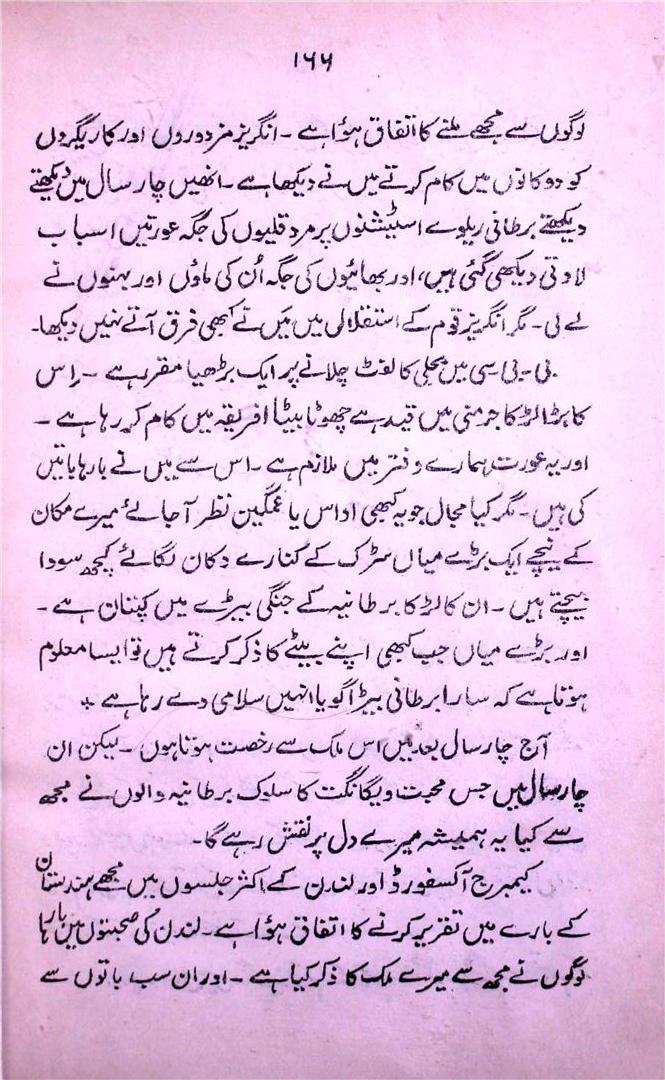 ۱۶۶
لوگوں سے مجھے ملنے کا اتفاق ہوُا ہے ۔ انگریز مزدوروں اور کاریگروں
کو دوکانوں میں کام کرتے میں نے دیکھا ہے ۔ انھیں چار سال میں دیکھتے
دیکھتے برطانی ریلوے اسٹیشنوں پر مرد قلیوں کی جگہ عورتیں اسباب
لادتی دیکھی گئی ہیں، اور بھائیوں کی جگہ اُن کی ماؤں اور بہنوں نے
لے لی ۔ مگر انگریز قوم کے استقلال میں مَیں نے کبھی فرق آتے نہیں دیکھا۔
بی ۔ بی سی میں بجلی کا لفٹ چلانے پر ایک بڑھیا مقرر ہے ۔ اِس
کا بڑا لڑکا جرمنی میں قید ہے چھوٹا بیٹا افریقہ میں کام کر رہا ہے ۔
اور یہ عورت ہمارے دفتر میں ملازم ہے ۔ اس سے میں نے بارہا باتیں
کی ہیں ۔ مگر کیا مجال جو یہ کبھی اداس یا غمگین نظر آجائے میرے مکان
کے نیچے ایک بڑے میاں سڑک کے کنارے دکان لگائے کچھ سودا
بیچتے ہیں ۔ ان کا لڑکا برطانیہ کے جنگی بیڑے میں کپتان ہے ۔
اور بڑے میاں جب کبھی اپنے بیٹے کا ذکر کرتے ہیں تو ایسا معلوم
ہوتا ہے کہ سارا برطانی بیڑا گویا انہیں سلامی دے رہا ہے ٭
آج چار سال بعد میں اس ملک سے رخصت ہوتا ہوں ۔ لیکن ان
چار سال میں جس محبت و یگانگت کا سلوک برطانیہ والوں نے مجھ
سے کیا یہ ہمیشہ میرے دل پر نقش رہے گا ۔
کیمبرج آکسفورڈ اور لندن کے اکثر جلسوں میں مجھے ہندستان
کے بارے میں تقریر کرنے کا اتفاق ہوُا ہے ۔ لندن کی صحبتوں میں بارہا
لوگوں نے مجھ سے میرے ملک کا ذکر کیا ہے ۔ اور ان سب باتوں سے